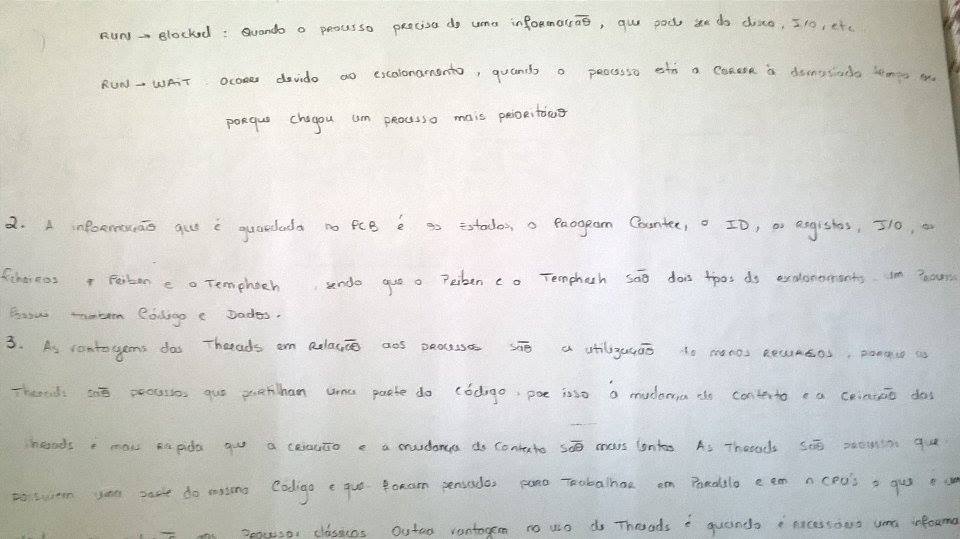 RUN → Blocked : Quando o processo precisa de uma informação, que pode ser do disco, I/O, etc
RUN → WAIT . ocorre devido ao escalonamento, quando o processo está a correr à demasiado tempo ou
porque chegou um processo mais prioritário
2. A informação que é guardada no PCB é os Estados, o Program Counter, o ID, os registos, I/O, os
ficheiros e o , sendo que o e o são dois tipos de escalonamento. um
Possui também Código e Dados.
3. As vantagens das Threads em Relação aos processos são a utilização de menos recursos, porque as
Threads são processos que partilham uma parte do código, por isso a mudança de contexto e a criação das
threads é mais rápida que a criação e a mudança de contexto são mais lentas As Threads são processos que
possuem uma parte do mesmo Código e que foram pensados para Trabalhar em Paralelo e em n CPU's o que é um
Processos clássicos. Outra vantagem no uso de Threads é quando é necessário uma informa